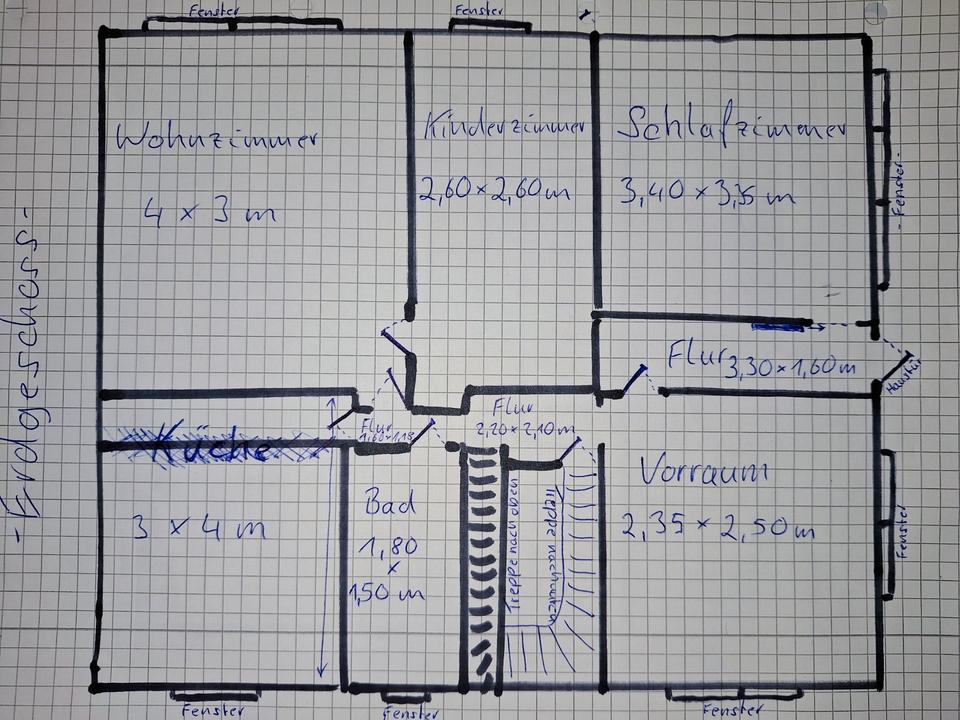 Fenster
Fenster
Wohnzimmer
4 x 3 m
Kinderzimmer
2,60 x 2,60 m
Schlafzimmer
3,40 x 3,35 m
- Fenster -
- Erdgeschoss -
Flur 3,30 x 1,60 m
Haustür
Flur
1,60 x 1,18
Flur
2,20 x 2,10 m
Küche
3 x 4 m
Bad
1,80
x
1,50 m
Treppe nach oben
Treppe nach unten
Vorraum
2,35 x 2,50 m
Fenster
Fenster
Fenster
Fenster